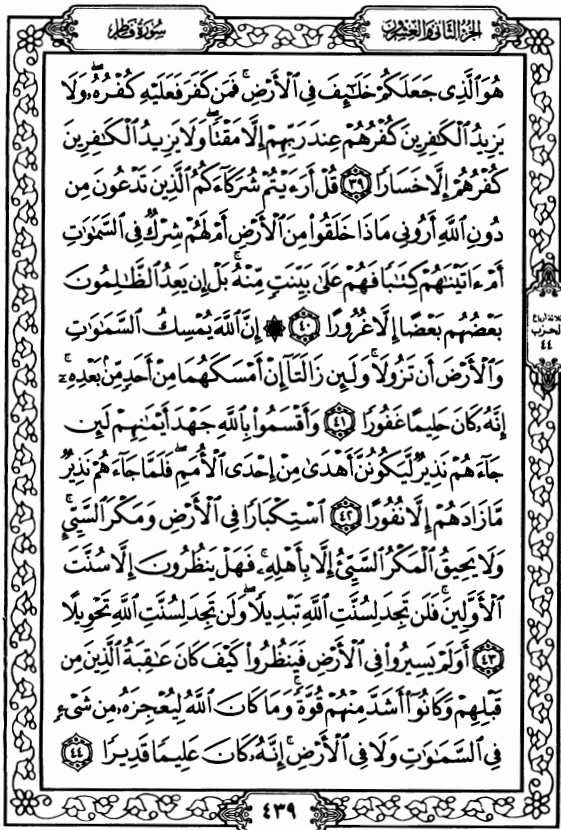 سُورَةُ فَاطِرٍ
الجُزْءُ الثَّانِي وَالعِشْرُونَ
هُوَ ٱلَّذِى جَعَلَكُمْ خَلَـٰٓئِفَ فِى ٱلْأَرْضِ ۚ فَمَن كَفَرَ فَعَلَيْهِ كُفْرُهُۥ ۖ وَلَا
يَزِيدُ ٱلْكَـٰفِرِينَ كُفْرُهُمْ عِندَ رَبِّهِمْ إِلَّا مَقْتًا ۖ وَلَا يَزِيدُ ٱلْكَـٰفِرِينَ
كُفْرُهُمْ إِلَّا خَسَارًا ٣٩ قُلْ أَرَءَيْتُمْ شُرَكَآءَكُمُ ٱلَّذِينَ تَدْعُونَ مِن
دُونِ ٱللَّهِ أَرُونِى مَاذَا خَلَقُوا۟ مِنَ ٱلْأَرْضِ أَمْ لَهُمْ شِرْكٌ فِى ٱلسَّمَـٰوَٰتِ
أَمْ ءَاتَيْنَـٰهُمْ كِتَـٰبًا فَهُمْ عَلَىٰ بَيِّنَتٍ مِّنْهُ ۚ بَلْ إِن يَعِدُ ٱلظَّـٰلِمُونَ
بَعْضُهُم بَعْضًا إِلَّا غُرُورًا ٤٠ ۞ إِنَّ ٱللَّهَ يُمْسِكُ ٱلسَّمَـٰوَٰتِ
وَٱلْأَرْضَ أَن تَزُولَا ۚ وَلَئِن زَالَتَآ إِنْ أَمْسَكَهُمَا مِنْ أَحَدٍ مِّنۢ بَعْدِهِۦٓ ۚ
إِنَّهُۥ كَانَ حَلِيمًا غَفُورًا ٤١ وَأَقْسَمُوا۟ بِٱللَّهِ جَهْدَ أَيْمَـٰنِهِمْ لَئِن
جَآءَهُمْ نَذِيرٌ لَّيَكُونُنَّ أَهْدَىٰ مِنْ إِحْدَى ٱلْأُمَمِ ۖ فَلَمَّا جَآءَهُمْ نَذِيرٌ
مَّا زَادَهُمْ إِلَّا نُفُورًا ٤٢ ٱسْتِكْبَارًا فِى ٱلْأَرْضِ وَمَكْرَ ٱلسَّيِّئِ ۚ
وَلَا يَحِيقُ ٱلْمَكْرُ ٱلسَّيِّئُ إِلَّا بِأَهْلِهِۦ ۚ فَهَلْ يَنظُرُونَ إِلَّا سُنَّتَ
ٱلْأَوَّلِينَ ۚ فَلَن تَجِدَ لِسُنَّتِ ٱللَّهِ تَبْدِيلًا ۖ وَلَن تَجِدَ لِسُنَّتِ ٱللَّهِ تَحْوِيلًا
٤٣ أَوَلَمْ يَسِيرُوا۟ فِى ٱلْأَرْضِ فَيَنظُرُوا۟ كَيْفَ كَانَ عَـٰقِبَةُ ٱلَّذِينَ مِن
قَبْلِهِمْ وَكَانُوٓا۟ أَشَدَّ مِنْهُمْ قُوَّةً ۚ وَمَا كَانَ ٱللَّهُ لِيُعْجِزَهُۥ مِن شَىْءٍ
فِى ٱلسَّمَـٰوَٰتِ وَلَا فِى ٱلْأَرْضِ ۚ إِنَّهُۥ كَانَ عَلِيمًا قَدِيرًا ٤٤
ثلاثة أرباع
الحزب
٤٤
٤٣٩